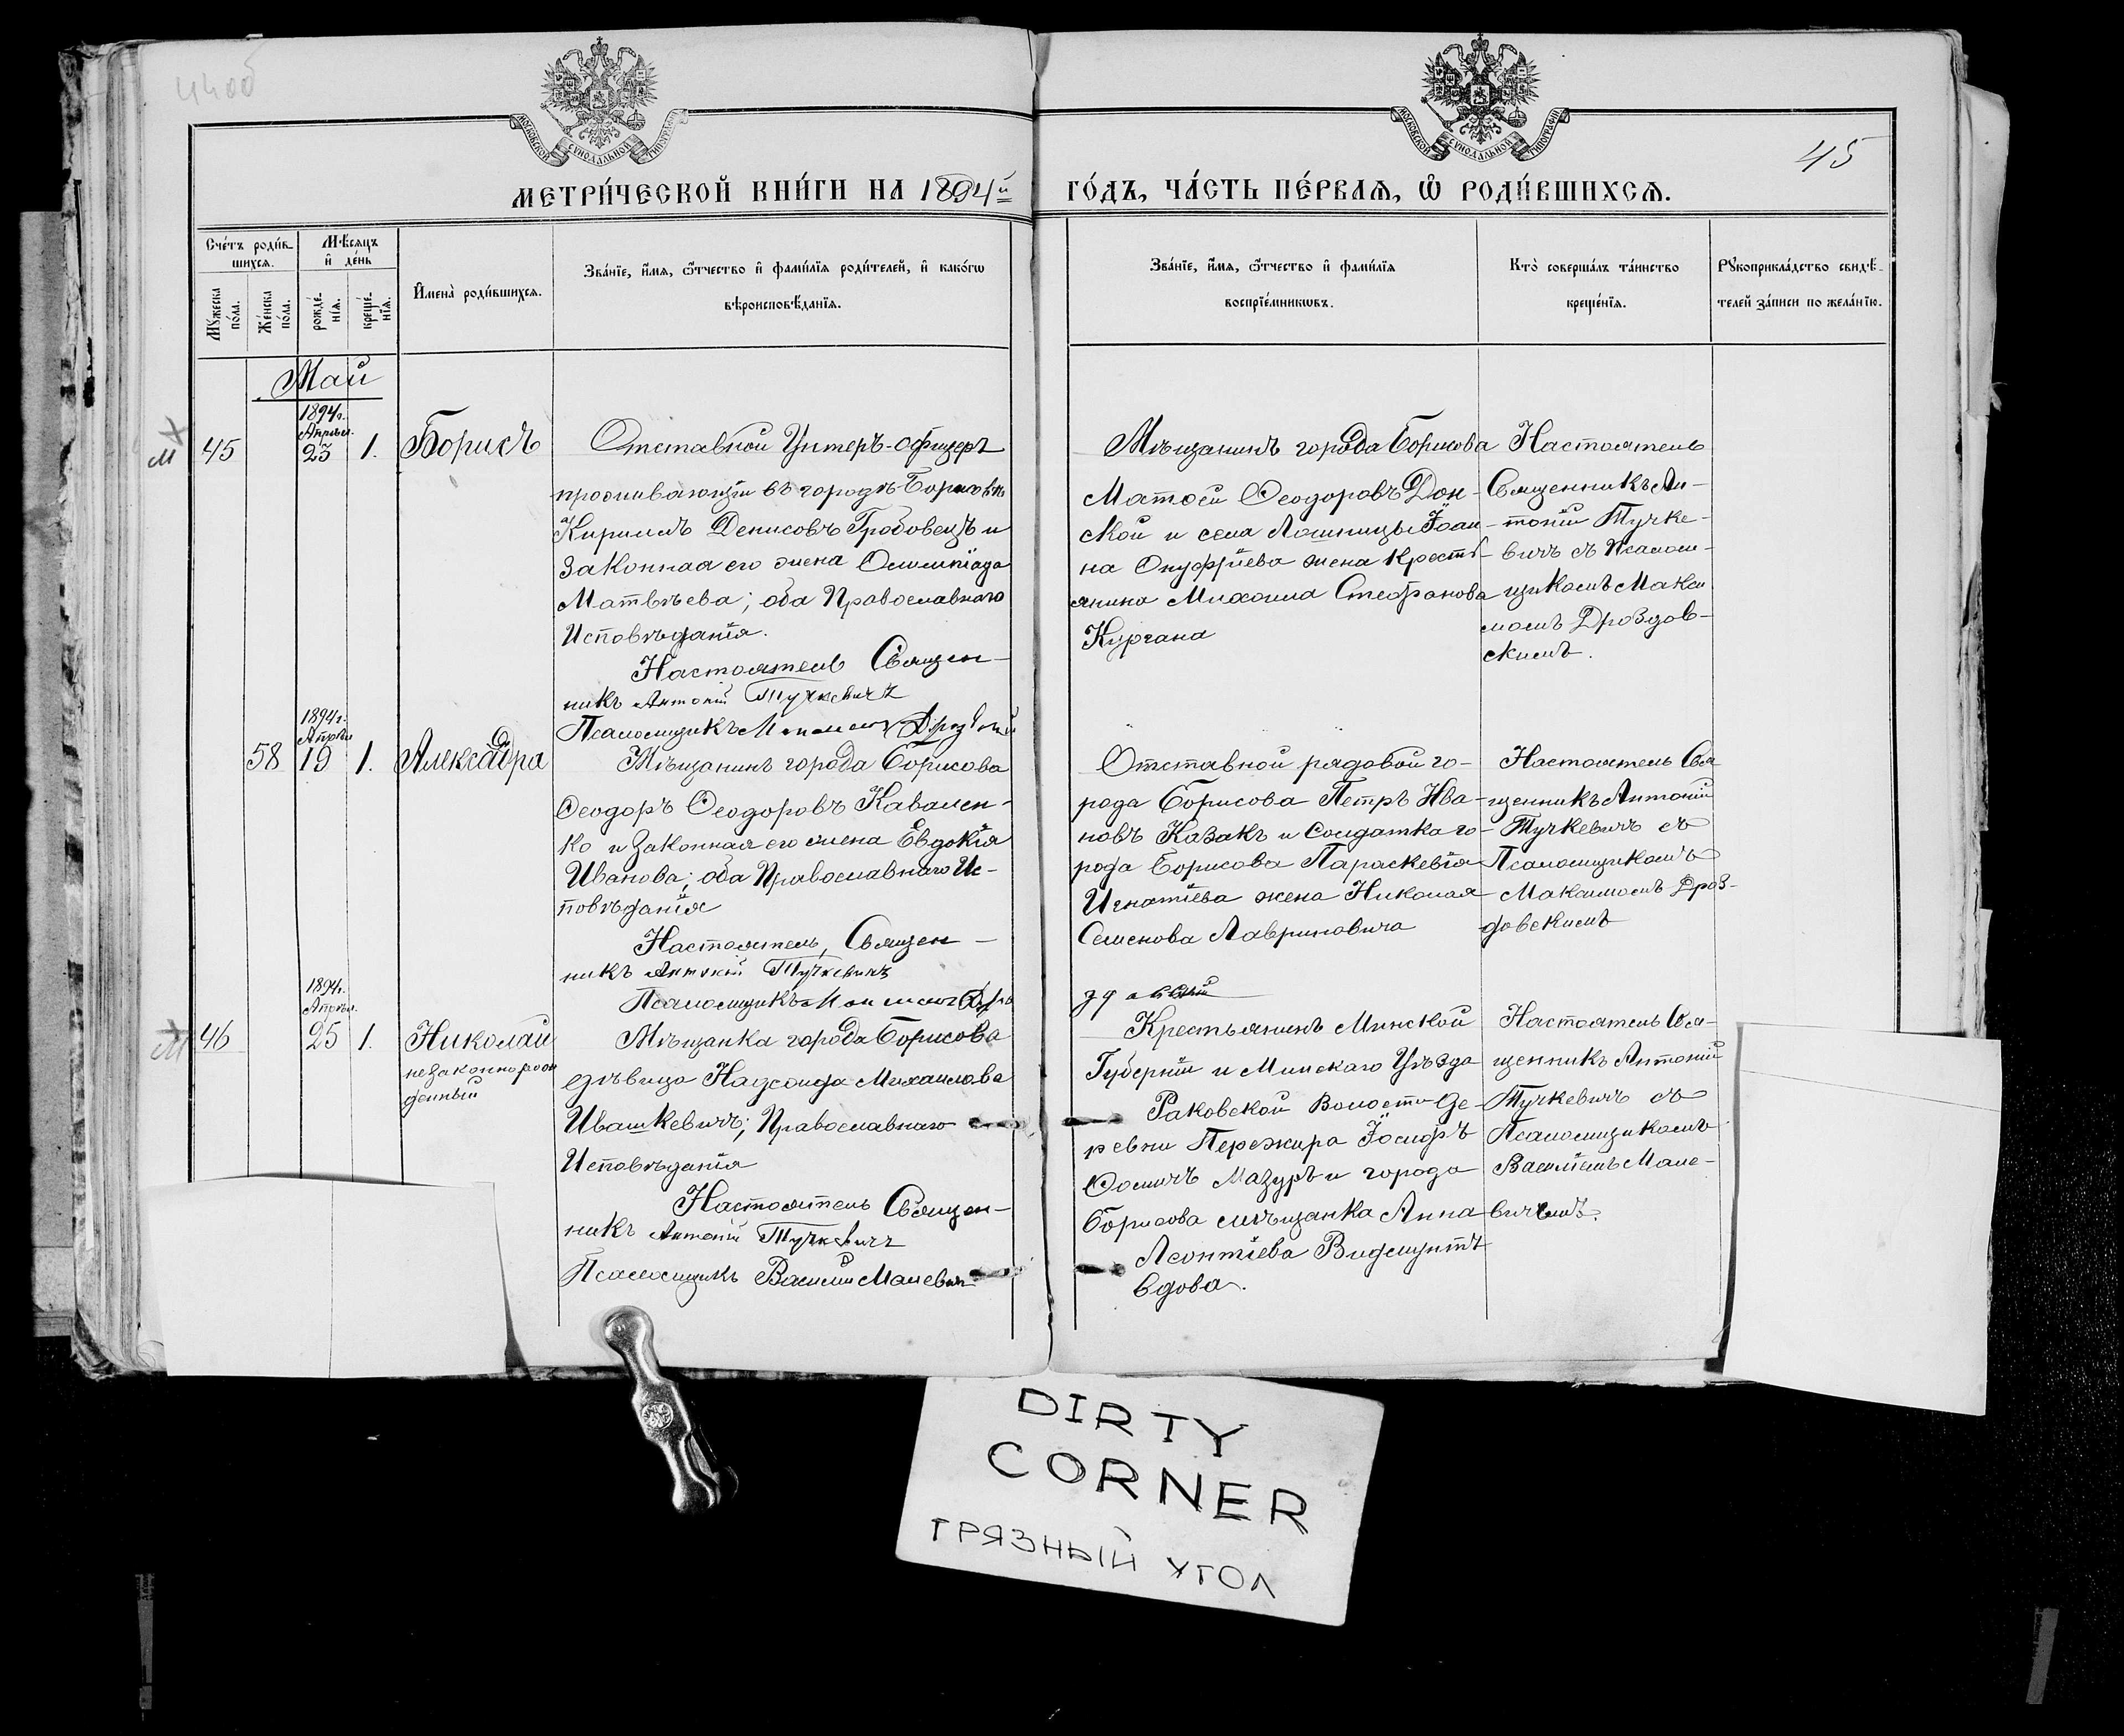 44об
МОСКОВСКОЙ СѴНОДАЛЬНОЙ ТИПОГРАФІИ
МОСКОВСКОЙ СѴНОДАЛЬНОЙ ТИПОГРАФІИ
45
МЕТРИ́ЧЕСКОЙ КНИ́ГИ НА 1894й ГО́ДЪ, ЧА́СТЬ ПЕ́РВАѦ, Ѽ РОДИ́ВШИХСѦ.
Сче́тъ роди́вшихсѧ.
Мꙋ́жеска по́ла.
Же́нска по́ла.
Мѣ́сѧцъ и҆ де́нь
рожде́нїѧ.
креще́нїѧ.
И҆мена̀ роди́вшихсѧ.
Зва́нїе, и҆́мѧ, ѻ҆́тчество и҆ фами́лїѧ роди́телей, и҆ како́гѡ
вѣроисповѣ́данїѧ.
Зва́нїе, и҆́мѧ, ѻ҆́тчество и҆ фами́лїѧ
воспрїе́мникѡвъ.
Кто̀ соверша́лъ та́инство
креще́нїѧ.
Рꙋкоприкла́дство свидѣ́-
телей за́писи по жела́нїю.
Май
1894г.
Апрѣл.
м 45 23 1. Борисъ
Отставной Унтеръ-офицеръ
проживающій въ городѣ Борисовѣ
Кириллъ Денисовъ Гробовецъ и
законная его жена Олимпіада
Матвѣева; оба Православнаго
Исповѣданія.
Настоятель Священ-
никъ Антоній Тучкевичъ
Псаломщикъ Максимъ
Мѣщанинъ города Борисова
Матөей Ѳеодоровъ Дон-
ской и села Лошницы Іоан-
на Онуфріева жена крестья-
янина Михаила Стефанова
Кургана
Настоятель
Священникъ Ан-
тоній Тучке-
вичъ съ Псалом-
щикомъ Макси
момъ Дроздов-
скимъ.
1894г.
Апрѣл
58 19 1. Александра
Мѣщанинъ города Борисова
Ѳеодоръ Ѳеодоровъ Кавален-
ко и законная его жена Евдокія
Иванова; оба Православнаго Ис-
повѣданія
Настоятель, Священ-
никъ Антоній Тучкевичъ
Псаломщикъ Максимъ Дро
здовскій
Отставной рядовой го-
рода Борисова Петръ Ива-
новъ Казакъ и Солдатка го-
рода Борисова Параскевія
Игнатіева жена Николая
Семенова Лавриновича
Настоятель Свя
щенникъ Антоній
Тучкевичъ съ
Псаломщикомъ
Максимомъ Дроз-
довскимъ
1894г.
Апрѣл.
м 46 25 1. Николай
незаконнорож
денный
Мѣщанка города Борисова
дѣвица Надежда Михаилова
Ивашкевичъ; Православнаго
Исповѣданія
Настоятель Священ-
никъ Антоній Тучкевичъ
Псаломщикъ Василій Малевич
Крестьянинъ Минской
Губерніи и Минскаго Уѣзда
Раковской Волости де-
ревни Пережира Іосифъ
Ѳомичъ Мазуръ и города
Борисова мѣщанка Анна
Леонтіева Видмунтъ
вдова.
Настоятель Свя-
щенникъ Антоній
Тучкевичъ съ
Псаломщикомъ
Василіемъ Мале-
вичемъ.
DIRTY
CORNER
ГРЯЗНЫЙ УГОЛ